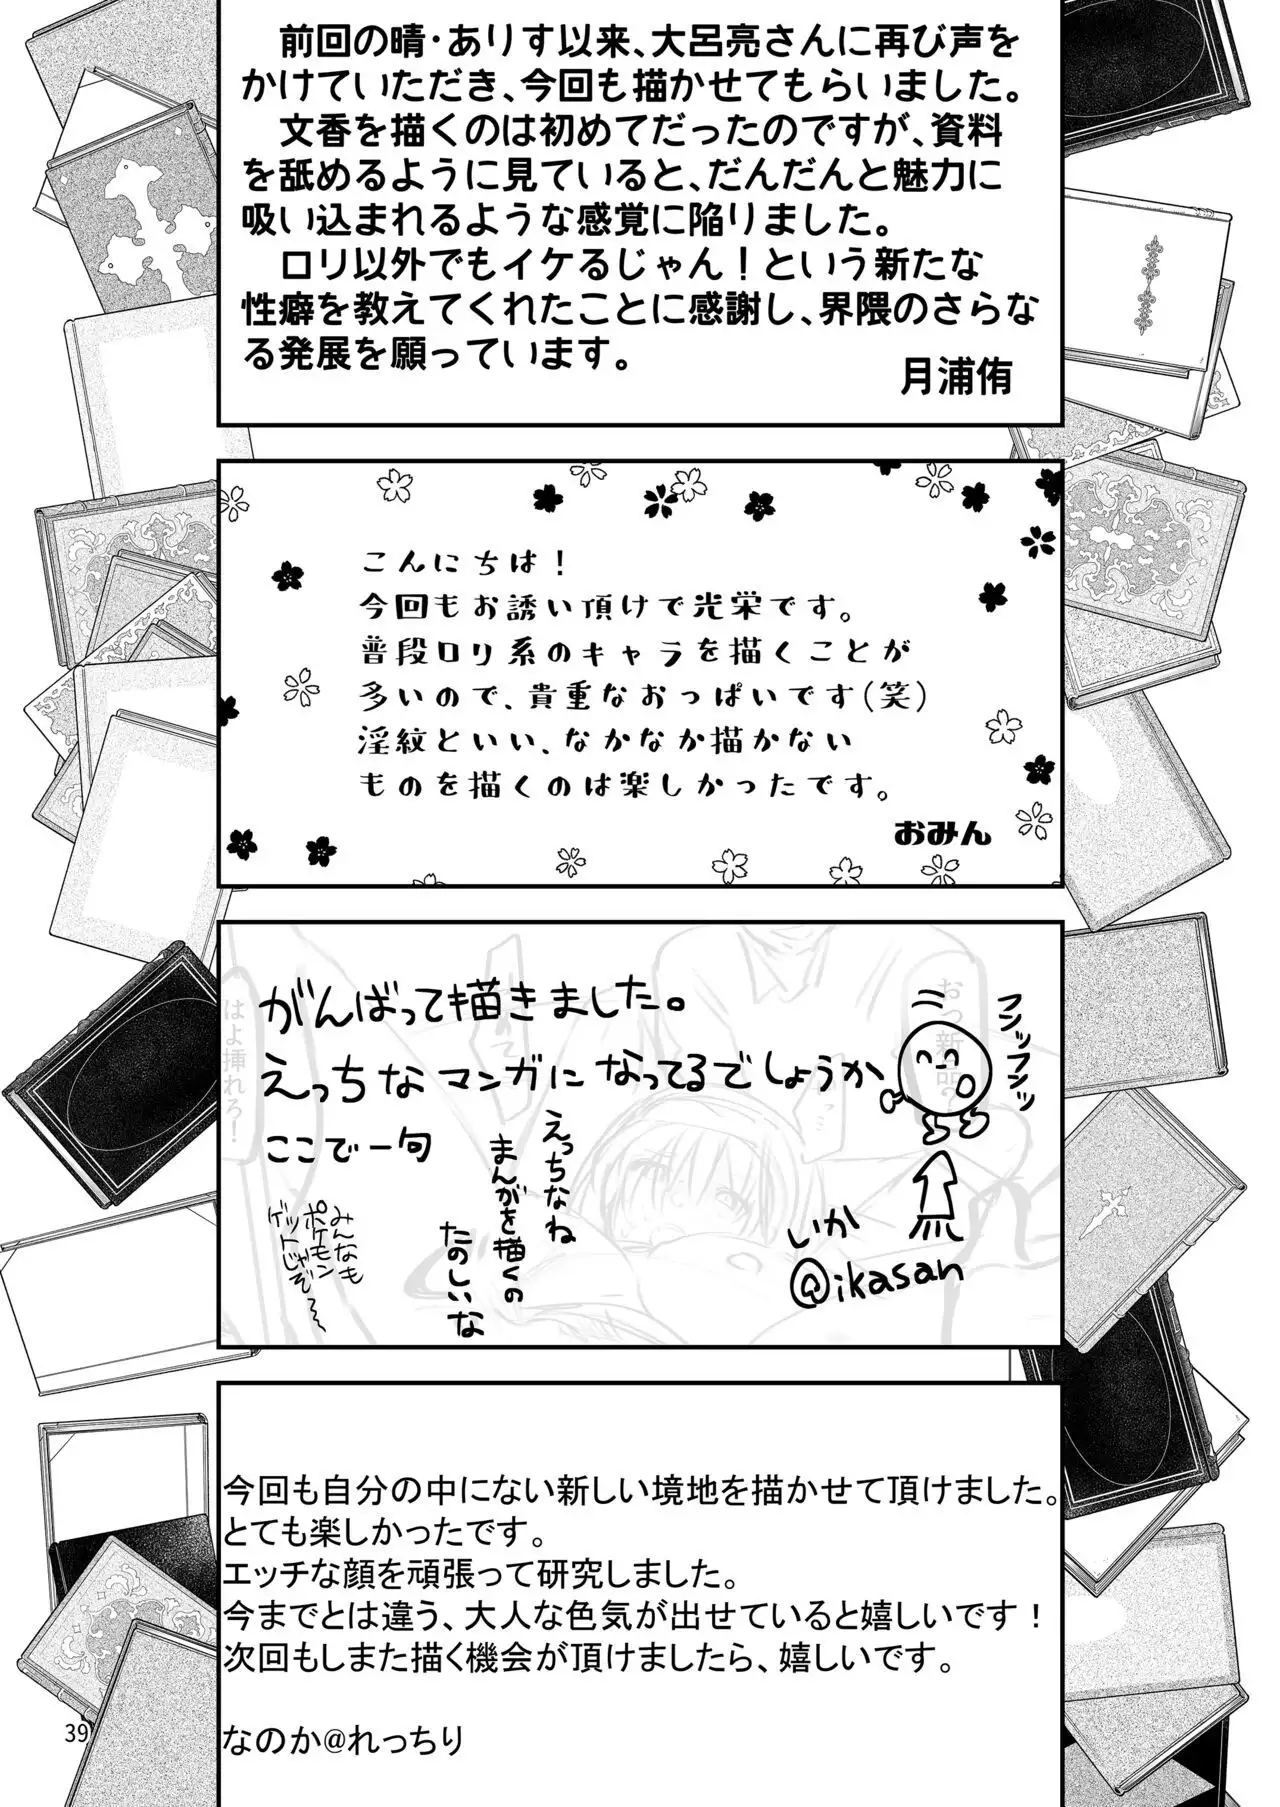 前回の晴・ありす以来、大呂亮さんに再び声を
かけていただき、今回も描かせてもらいました。
文香を描くのは初めてだったのですが、資料
を舐めるように見ていると、だんだんと魅力に
吸い込まれるような感覚に陥りました。
ロリ以外でもイケるじゃん！という新たな
性癖を教えてくれたことに感謝し、界隈のさらな
る発展を願っています。
月浦侑
こんにちは！
今回もお誘い頂けて光栄です。
普段ロリ系のキャラを描くことが
多いので、貴重なおっぱいです(笑)
淫紋といい、なかなか描かない
ものを描くのは楽しかったです。
おみん
がんばって描きました。
えっちなマンガになってるでしょうか
ここで一句
えっちなね
まんがを描くの
たのしいな
みんなも
ポケモン
ゲットじゃぞ〜
フンッフンッ
おっ新品?
はよ挿れろ!
いか
@ikasan
今回も自分の中にない新しい境地を描かせて頂けました。
とても楽しかったです。
エッチな顔を頑張って研究しました。
今までとは違う、大人な色気が出せていると嬉しいです！
次回もしまた描く機会が頂けましたら、嬉しいです。
なのか@れっちり
39